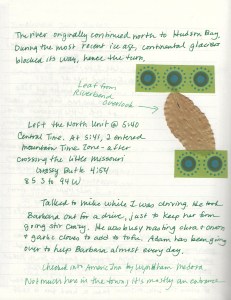 The river originally continued north to Hudson Bay.
During the most recent ice age, continental glaciers
blocked its way, hence the turn.
Leaf from
Riverbend
Overlook
Left the North Unit @ 5:40
Central Time. At 5:41, I entered
Mountain Time Zone - after
crossing the Little Missouri
Grassy Butte 4:54
85 S to 94 W
Talked to Mike while I was driving. He took
Barbara out for a drive, just to keep her from
going stir crazy. He was busy roasting okra + onion
+ garlic cloves to add to tofu. Adam has been going
over to help Barbara almost every day.
Checked into AmericInn by Wyndham Medora
Not much here in the town; it's mostly an entrance